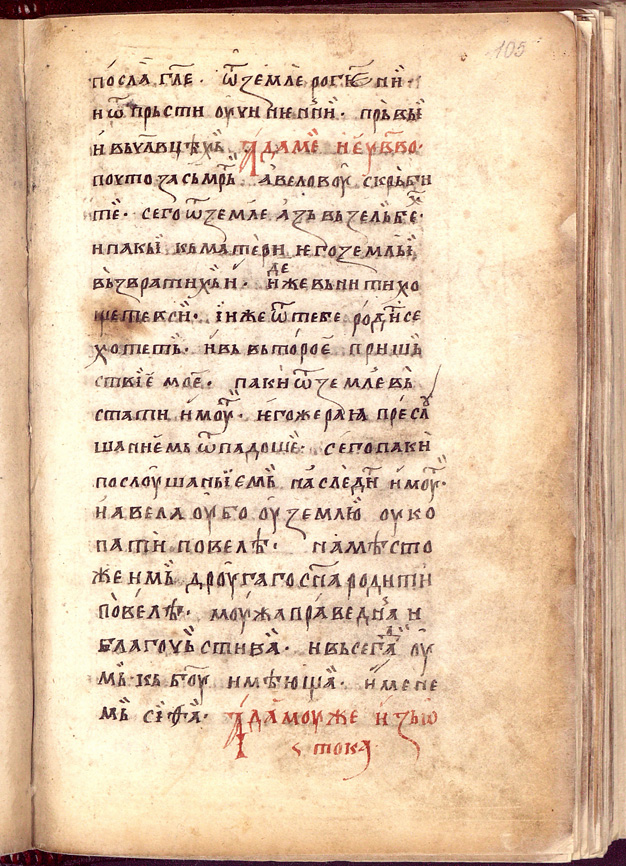 105
посла гл҃е · ѿ земле рогѥнїи ·
и ѿ прьсти оучинїенїи · прьвыѥ
и вь чл҃вцѣхь Адаме и еѵ҃во ·
поуто за сьмрть авеловоу скрьби
те · сего ѿ земле азь вьзель бех ·
и пакы кь матери ѥго земльї
вьзвратихь и · иде же вьнити хо
щете вси · і иже ѿ тебе родити се
хотеть · и вь второѥ пришь
ствїе моѥ · паки ѿ земле вь
стати имоуть · ѥгоже раꙗ прѣслꙋ
шанїемь ѿпадоше · сего паки
послоушаньїемь наследити имоуть ·
и авела оубо оу землю оуко
пати повелѣ · на место
же ѥмь дроугаго сн҃а родити
повелѣ · моужа праведна и
благочьстива · и вьсегда оу
мь кь б҃оу имѣюща · имене
мь сіѳа · Адамоу же и зьѡ
тока